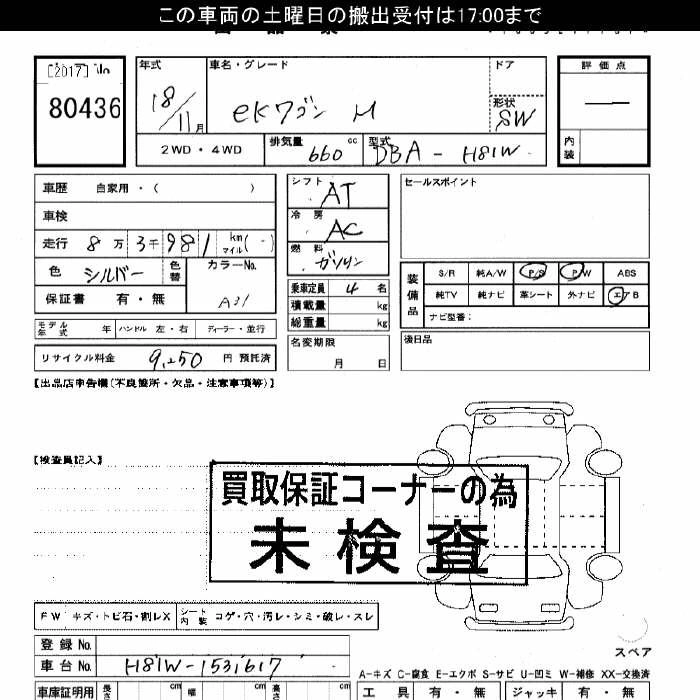 この車両の土曜日の搬出受付は17:00まで
[2017] No
80436
年式 18/11月
車名・グレード eKワゴン M
ドア
形状 SW
評価点 —
内装
2WD・4WD
排気量 660 cc
型式 DBA-H81W
車歴 自家用・( )
車検
走行 8万3千981 km マイル(-)
色 シルバー
色替
カラーNo. A31
保証書 有・無
シフト AT
冷房 AC
燃料 ガソリン
乗車定員 4 名
積載量 kg
総重量 kg
名変期限 月 日
セールスポイント
装備品
S/R 純A/W P/S P/W ABS
純TV 純ナビ 革シート 外ナビ エアB
ナビ型番:
後日品
モデル年式 年
ハンドル 左・右
ディーラー・並行
リサイクル料金 9,250 円 預託済
【出品店申告欄(不良箇所・欠品・注意事項等)】
【検査員記入】
買取保証コーナーの為
未検査
FW キズ・トビ石・割レX
シート内装 コゲ・穴・汚レ・シミ・破レ・スレ
スペア
登録No.
車台No. H81W-1531617
A-キズ C-腐食 E-エクボ S-サビ U-凹ミ W-補修 XX-交換済
車庫証明用 長さ cm 幅 cm 高さ cm
工具 有・無 ジャッキ 有・無